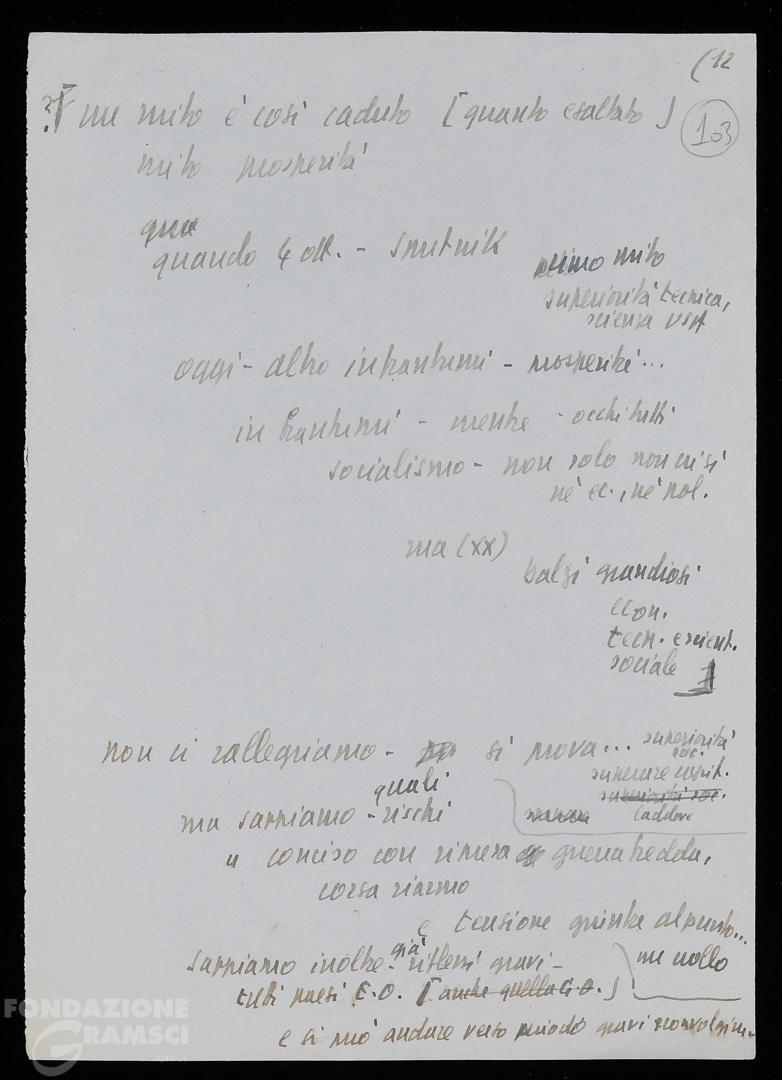 (12
103
un mito è così caduto [quanto esaltato]
mito prosperità
qua
quando 4 ott. - Sputnik
primo mito
superiorità tecnica,
scienza USA
oggi - altro in frantumi - prosperità...
in frantumi - mentre - occhi tutti
socialismo - non solo non crisi
né ec., né pol.
ma (xx)
balzi grandiosi
econ.
tecn. e scient.
sociale
non ci rallegriamo - si prova... superiorità
soc.
superare capit.
superiorità soc.
quali
ma sappiamo - rischi
laddove
conciso con ripresa guerra fredda,
corsa riarmo
e tensione spinta al punto...
già
sappiamo inoltre - riflessi gravi -
un crollo
tutti paesi E.O. [anche quella G.O.]
e si può andare verso periodo gravi sconvolgim.
FONDAZIONE
GRAMSCI
onlus